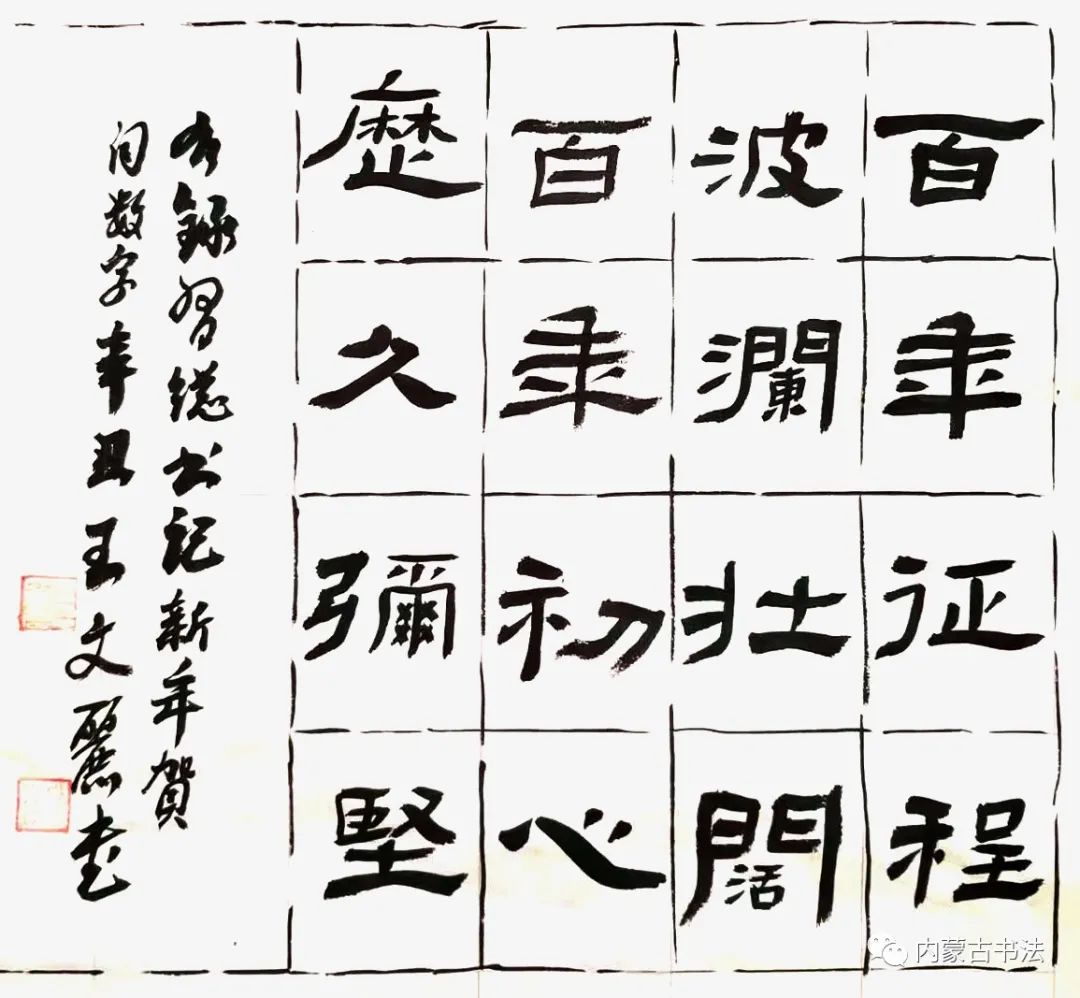 百年征程
波瀾壯闊
百年初心
歷久彌堅
右錄習總書記新年賀
詞數字辛丑王文麗書
内蒙古书法